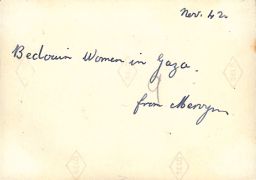 Nov. 42.
Bedouin Women in Gaza.
from Mervyn